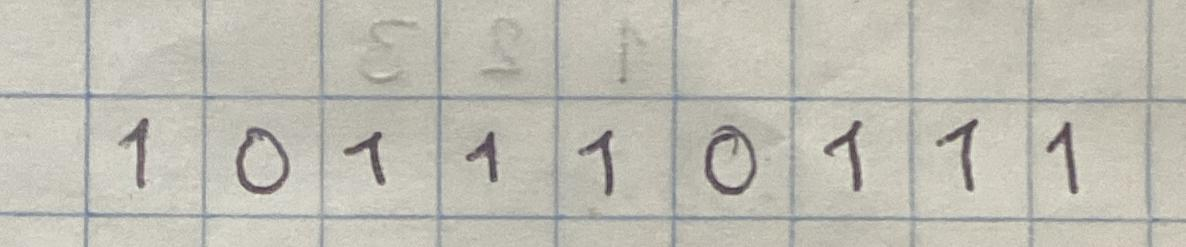 1 0 1 1 1 0 1 1 1